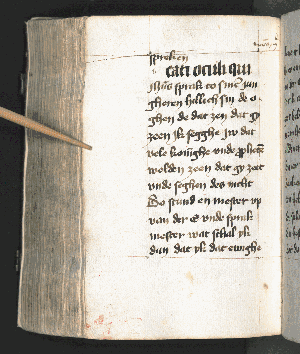 spreken
cati oculi qui
Jhūs sprak to sinē jun
gheren hillich sin de o
ghen de dat zeen dat gy
zeen ik segghe jw dat
vele konighe vnde
wolden zeen dat gy zeet
vnde seghen des nicht
Do stund en mester vp
van der e vnde sprak
mester wat schal yk
dan dat yk dat ewighe